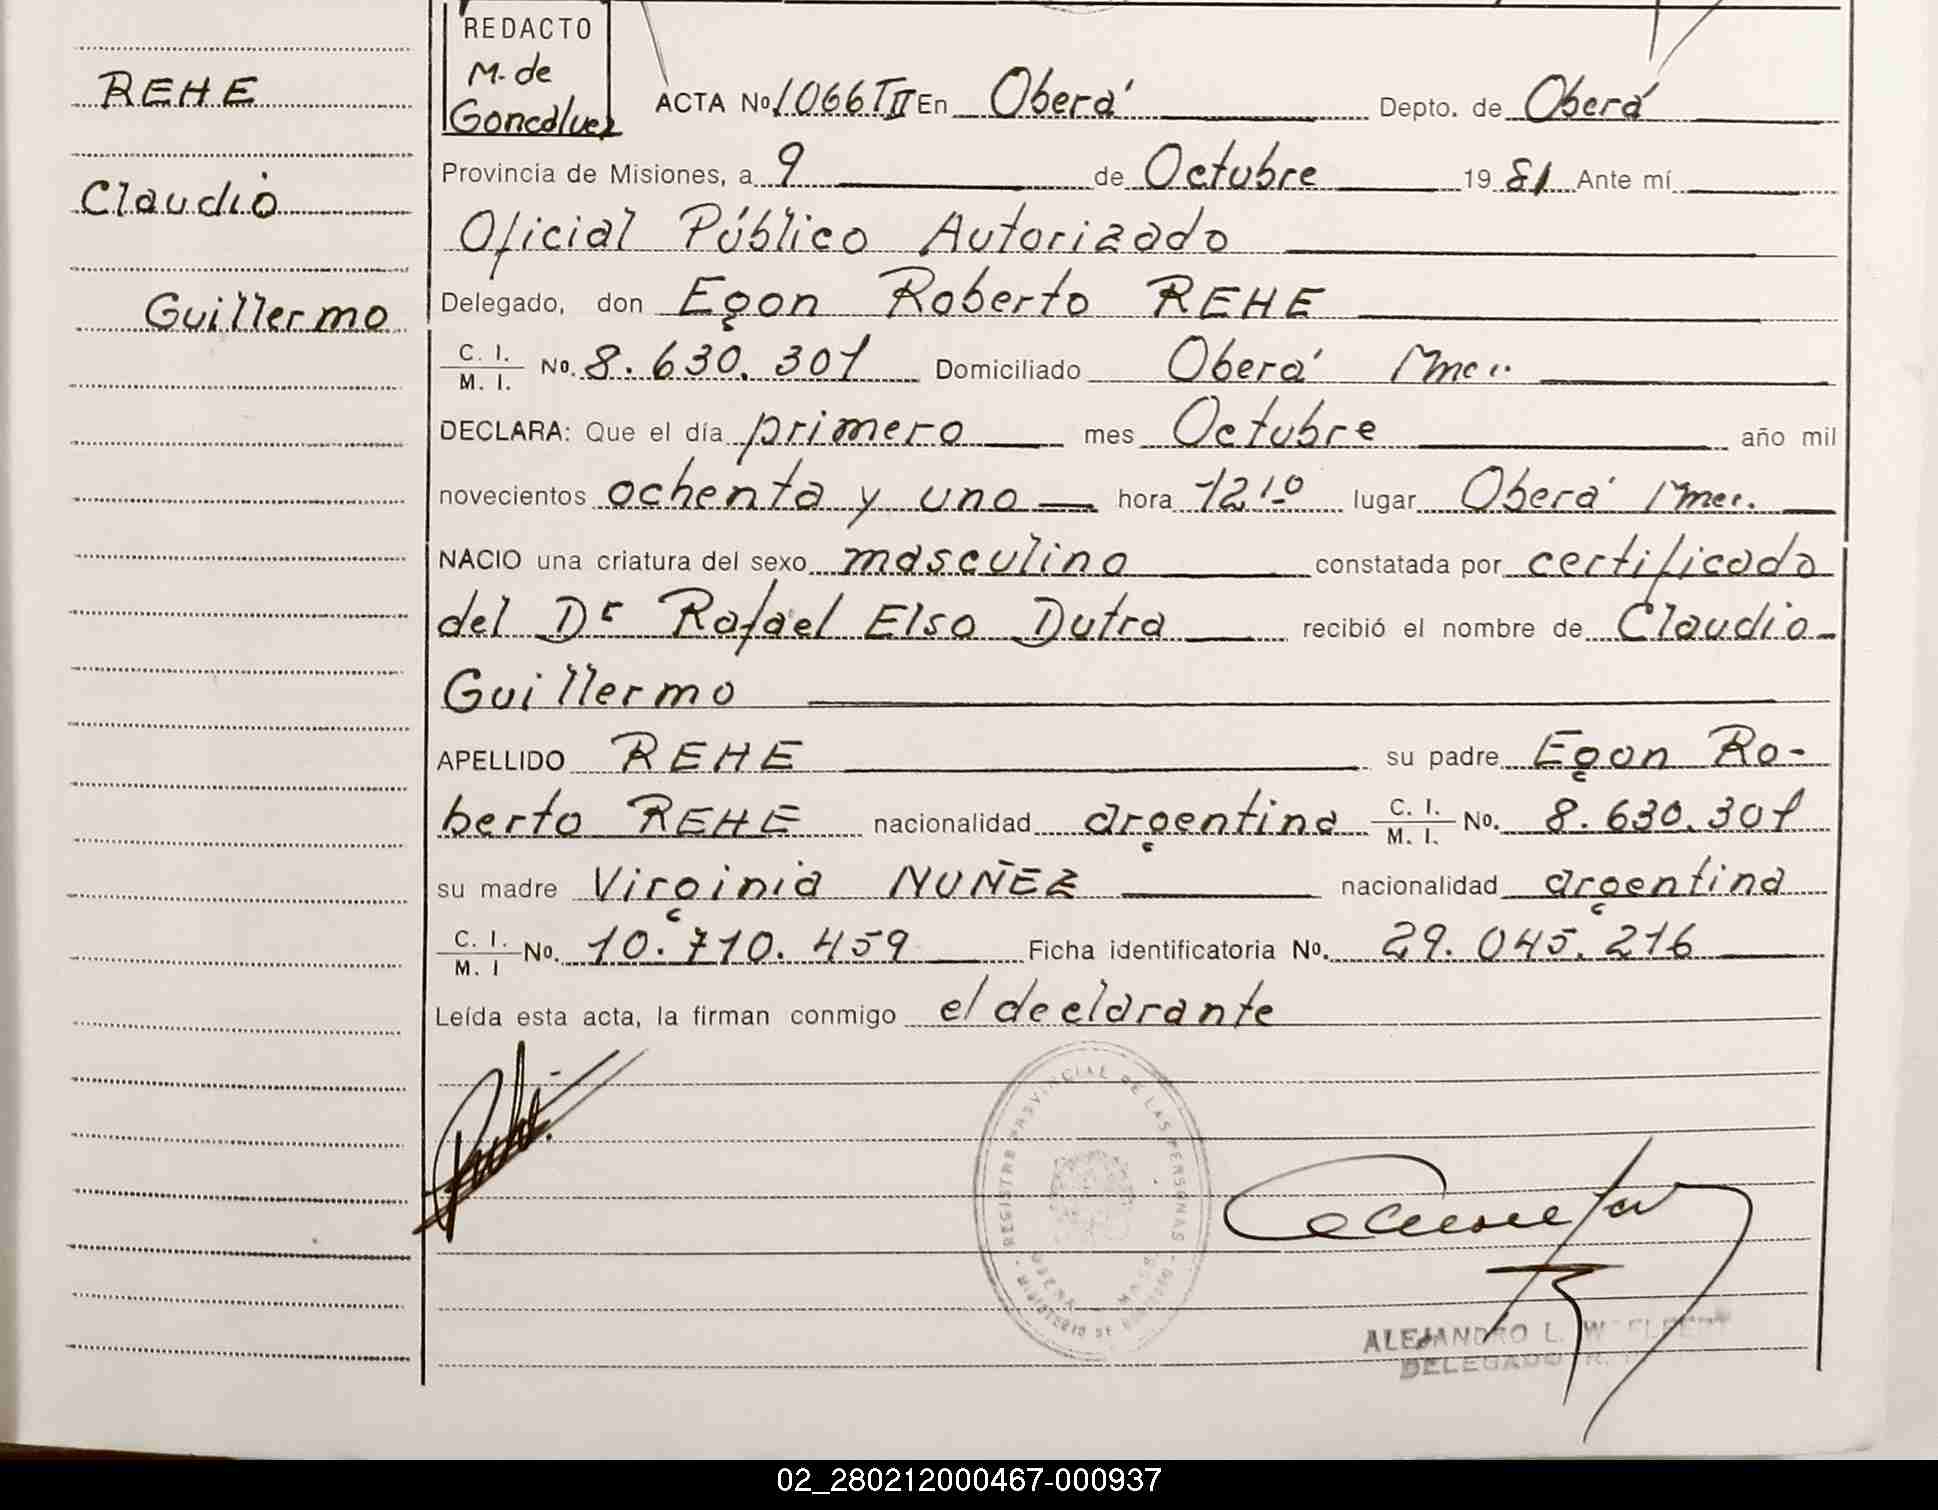 REHE
Claudio
Guillermo
REDACTO
M. de
Goncalvez
ACTA No 1066 T II En Oberá Depto. de Oberá
Provincia de Misiones, a 9 de Octubre 1981 Ante mí
Oficial Público Autorizado
Delegado, don Egon Roberto REHE
C. I. / M. I. No. 8.630.301 Domiciliado Oberá
DECLARA: Que el día primero mes Octubre año mil
novecientos ochenta y uno hora 12,10 lugar Oberá
NACIO una criatura del sexo masculino constatada por certificado
del Dr Rafael Elso Dutra recibió el nombre de Claudio
Guillermo
APELLIDO REHE su padre Egon Ro-
berto REHE nacionalidad argentina C. I. / M. I. No. 8.630.301
su madre Virginia NUÑEZ nacionalidad argentina
C. I. / M. I No. 10.710.459 Ficha identificatoria No. 29.045.216
Leída esta acta, la firman conmigo el declarante
REGISTRO PROVINCIAL DE LAS PERSONAS
ALEJANDRO L.
DELEGADO
02_280212000467-000937